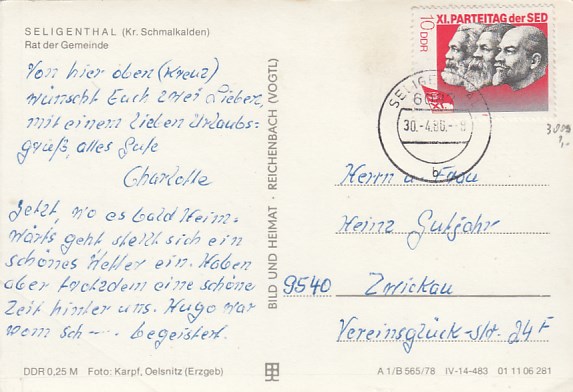 SELIGENTHAL (Kr. Schmalkalden)
Rat der Gemeinde
Von hier oben (Kreuz)
wünscht Euch zwei Lieben,
mit einem lieben Urlaubs-
gruß, alles Gute
Charlotte
Jetzt, wo es bald Heim-
wärts geht stellt sich ein
schönes Wetter ein. Haben
aber trotzdem eine schöne
Zeit hinter uns. Hugo war
vom Sch--- begeistert.
DDR 0,25 M Foto: Karpf, Oelsnitz (Erzgeb)
BILD UND HEIMAT · REICHENBACH (VOGTL)
10 DDR
XI. PARTEITAG der SED
30.-4.86.--9
b
Herrn u. Frau
Heinz Gutjahr
9540 Zwickau
Vereinsglück-str. 24 F
A 1/B 565/78 IV-14-483 01 11 06 281